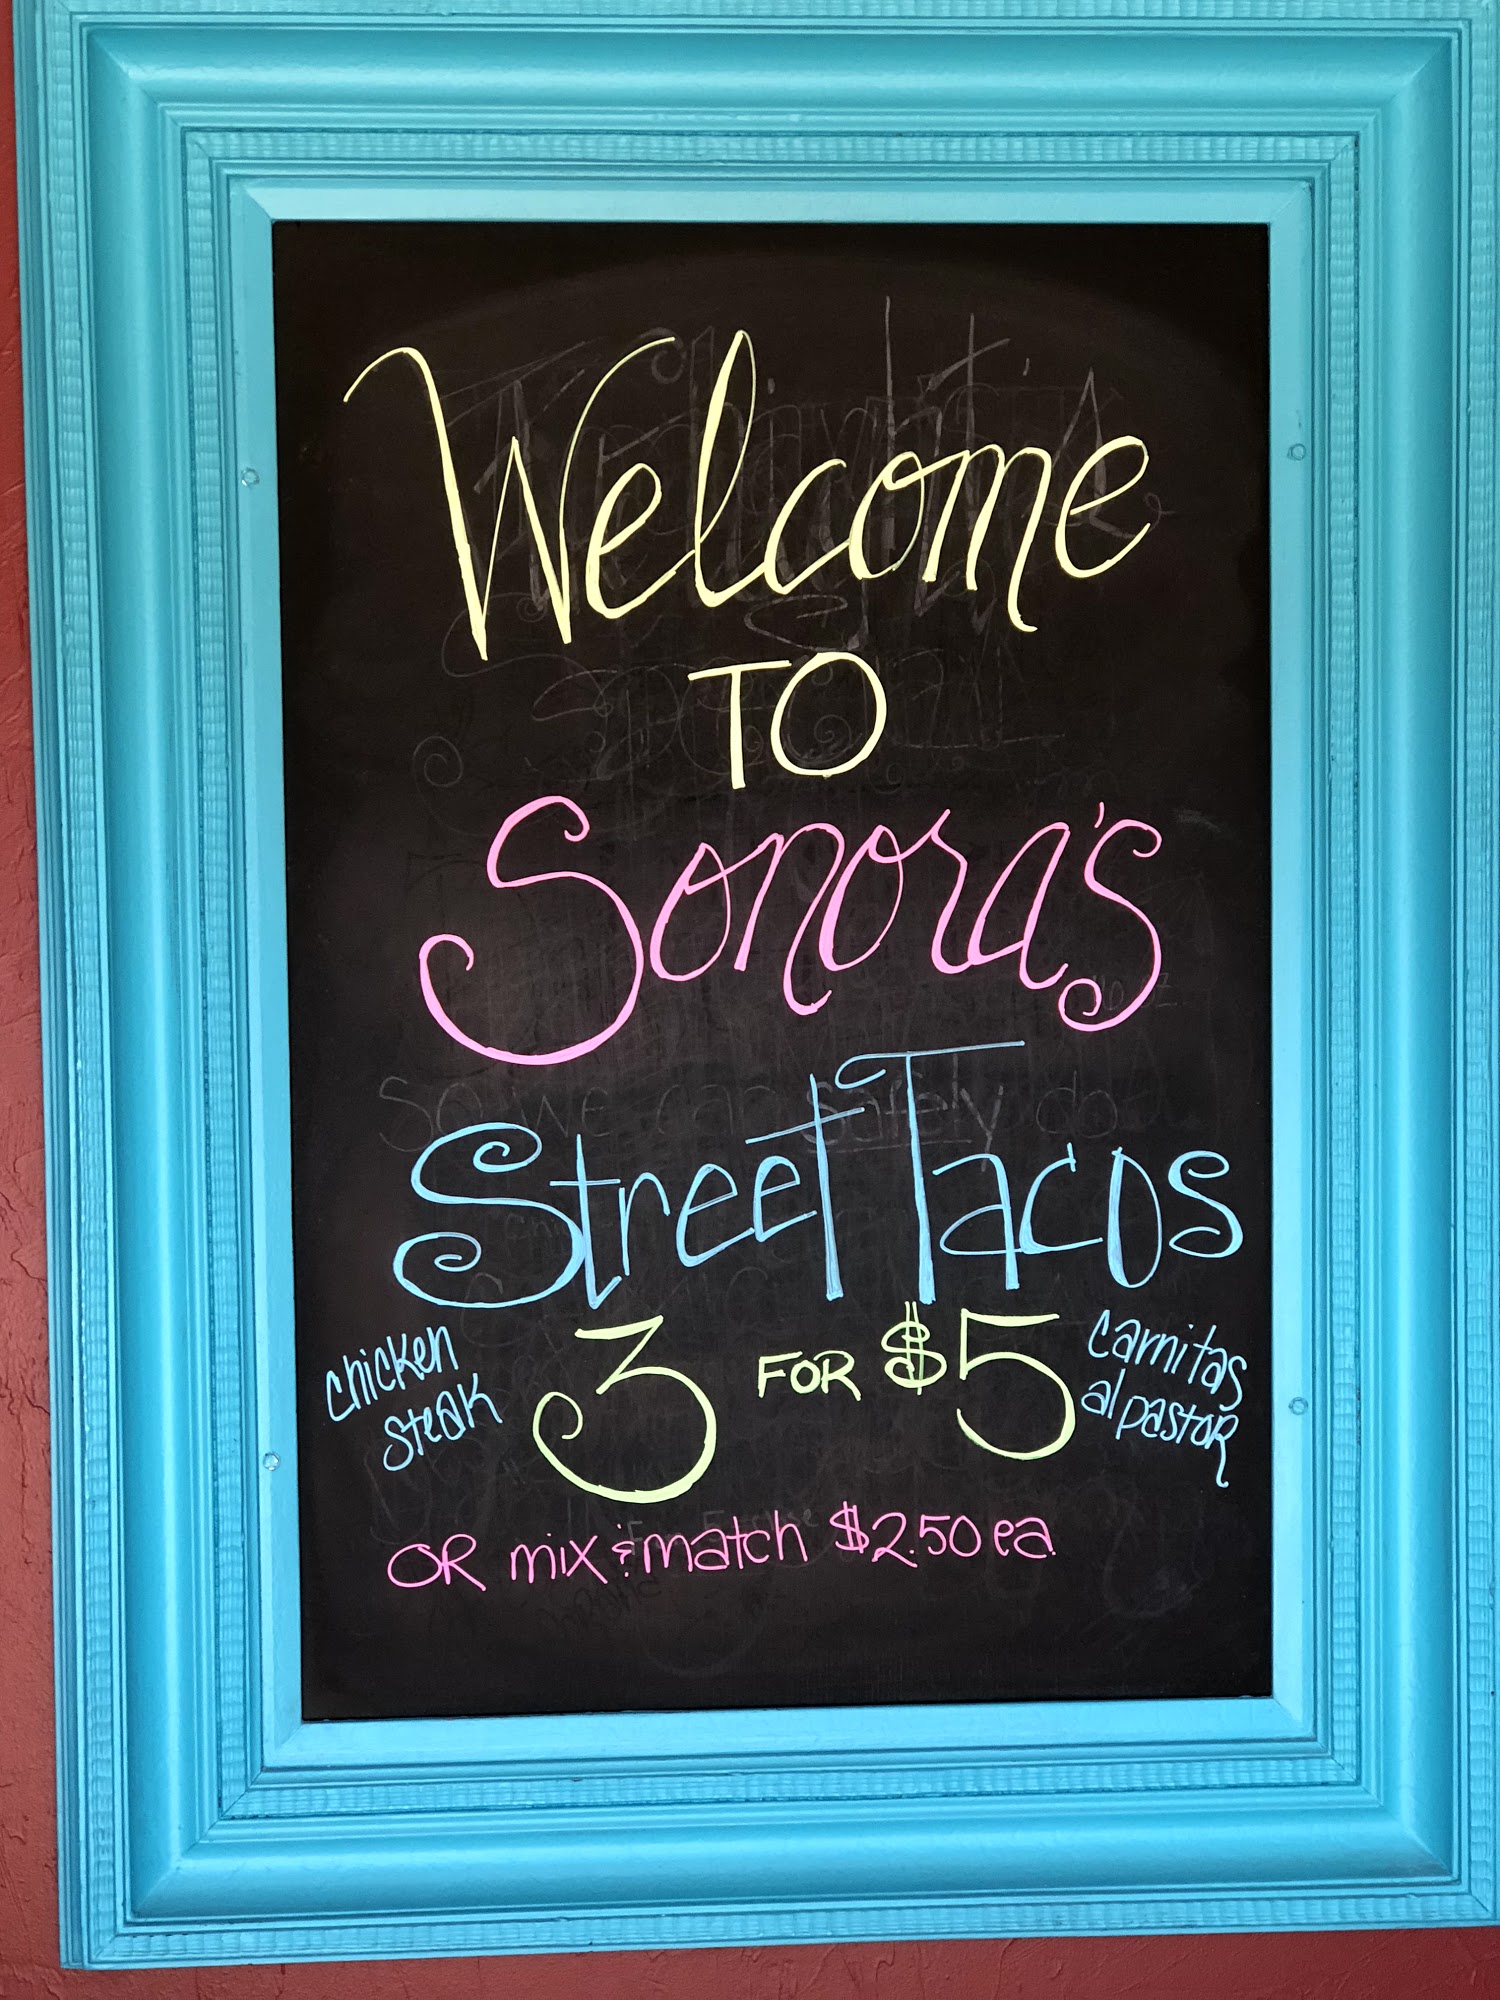 Welcome
TO
Sonora's
Street Tacos
chicken
steak
3 FOR $5
carnitas
al pastor
OR mix & match $2.50 ea.
So we can safely do